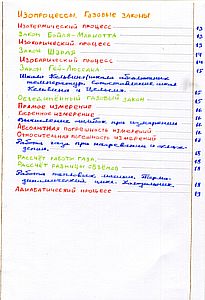 Изопроцессы. Газовые законы
Изотермический процесс 13
Закон Бойля-Мариотта 13
Изохорический процесс 13
Закон Шарля 14
Изобарический процесс 14
Закон Гей-Люссака 15
Шкала Кельвина (шкала абсолютных
температур. Сопоставление шкал
Кельвина и Цельсия. 15
Объединенный газовый закон 15
Прямое измерение 16
Косвенное измерение 16
Вычисление ошибок при измерении 16
Абсолютная погрешность измерений 16
Относительная погрешность измерений 16
Работа газа при нагревании и охлаж-
дении. 18
Рассчёт работы газа. 18
Рассчёт разницы объёмов 18
Работа тепловых машин. Термо-
динамический цикл. Холодильник. 18
Адиабатический процесс 19